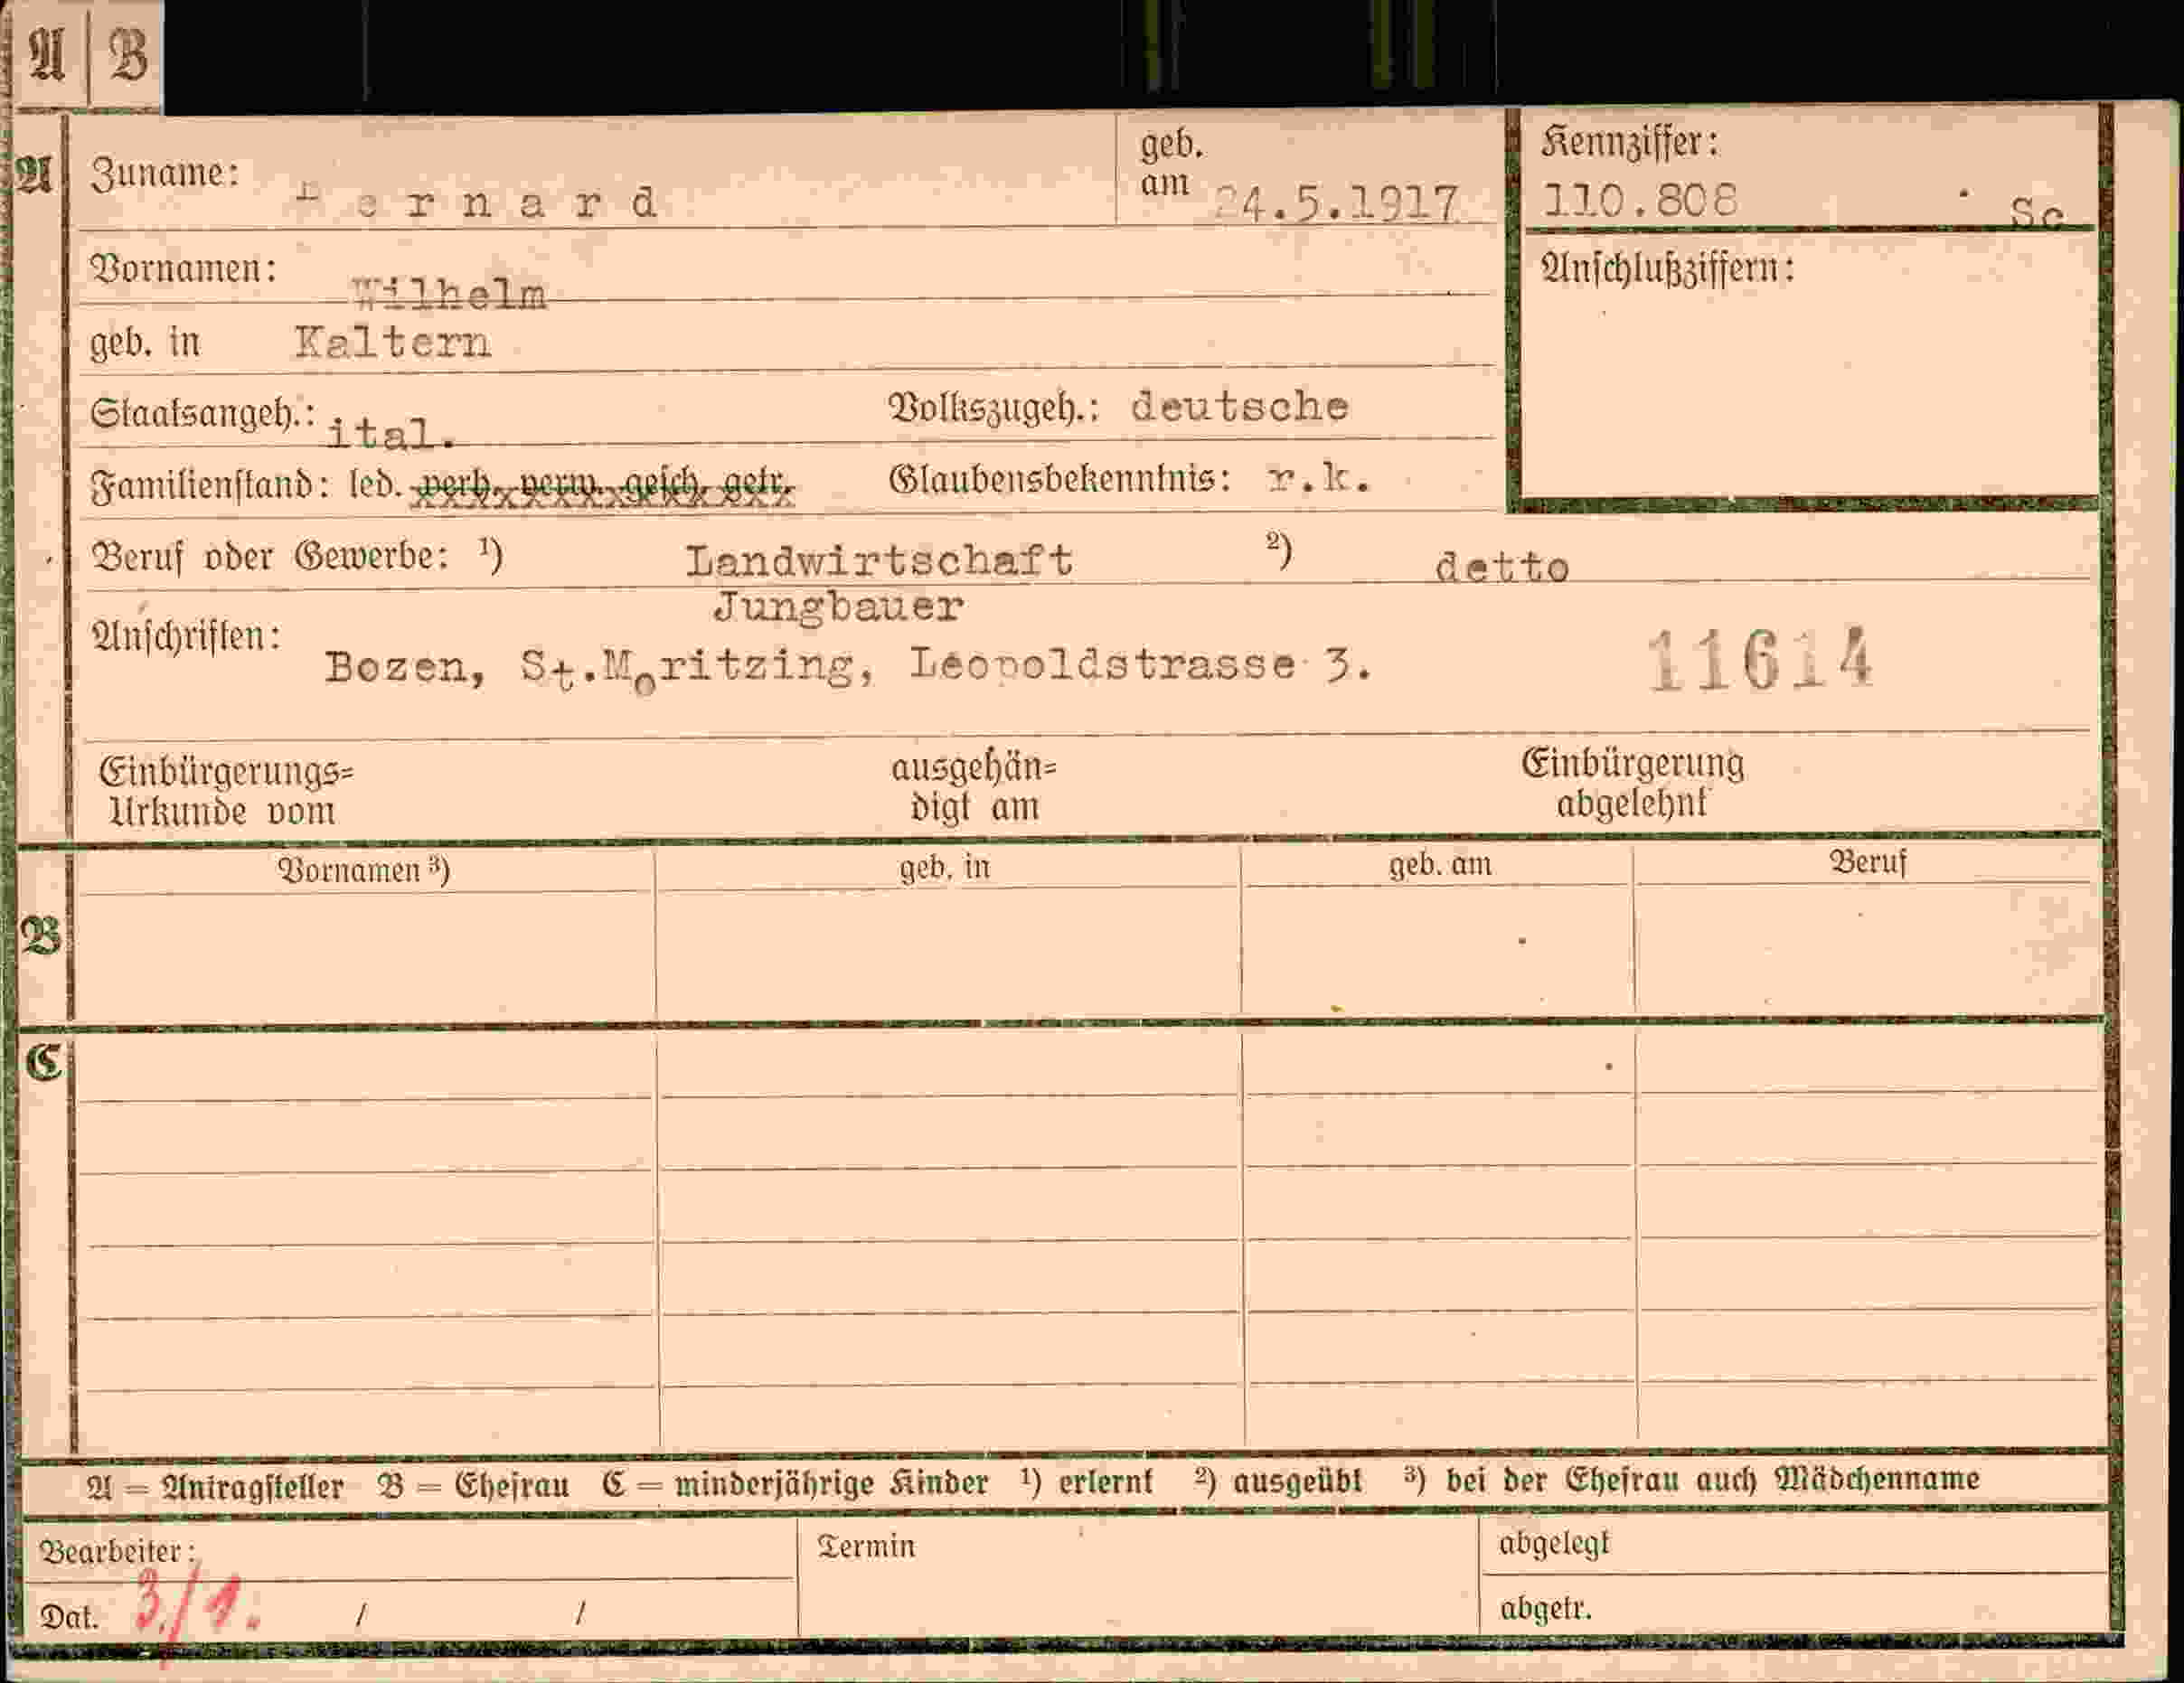 A B
A Zuname: Bernard geb. am 24.5.1917 Kennziffer: 110.808 Sc
Vornamen: Wilhelm Anschlußziffern:
geb. in Kaltern
Staatsangeh.: ital. Volkszugeh.: deutsche
Familienstand: led. verh. verw. gesch. getr. Glaubensbekenntnis: r.k.
Beruf oder Gewerbe: ¹) Landwirtschaft ²) detto
Jungbauer
Anschriften: Bozen, St.Moritzing, Leopoldstrasse 3. 11614
Einbürgerungs= ausgehän= Einbürgerung
Urkunde vom digt am abgelehnt
Vornamen ³) geb. in geb. am Beruf
B
C
A = Antragsteller B = Ehefrau C = minderjährige Kinder ¹) erlernt ²) ausgeübt ³) bei der Ehefrau auch Mädchenname
Bearbeiter: Termin abgelegt
Dat. 3./1. / / abgetr.